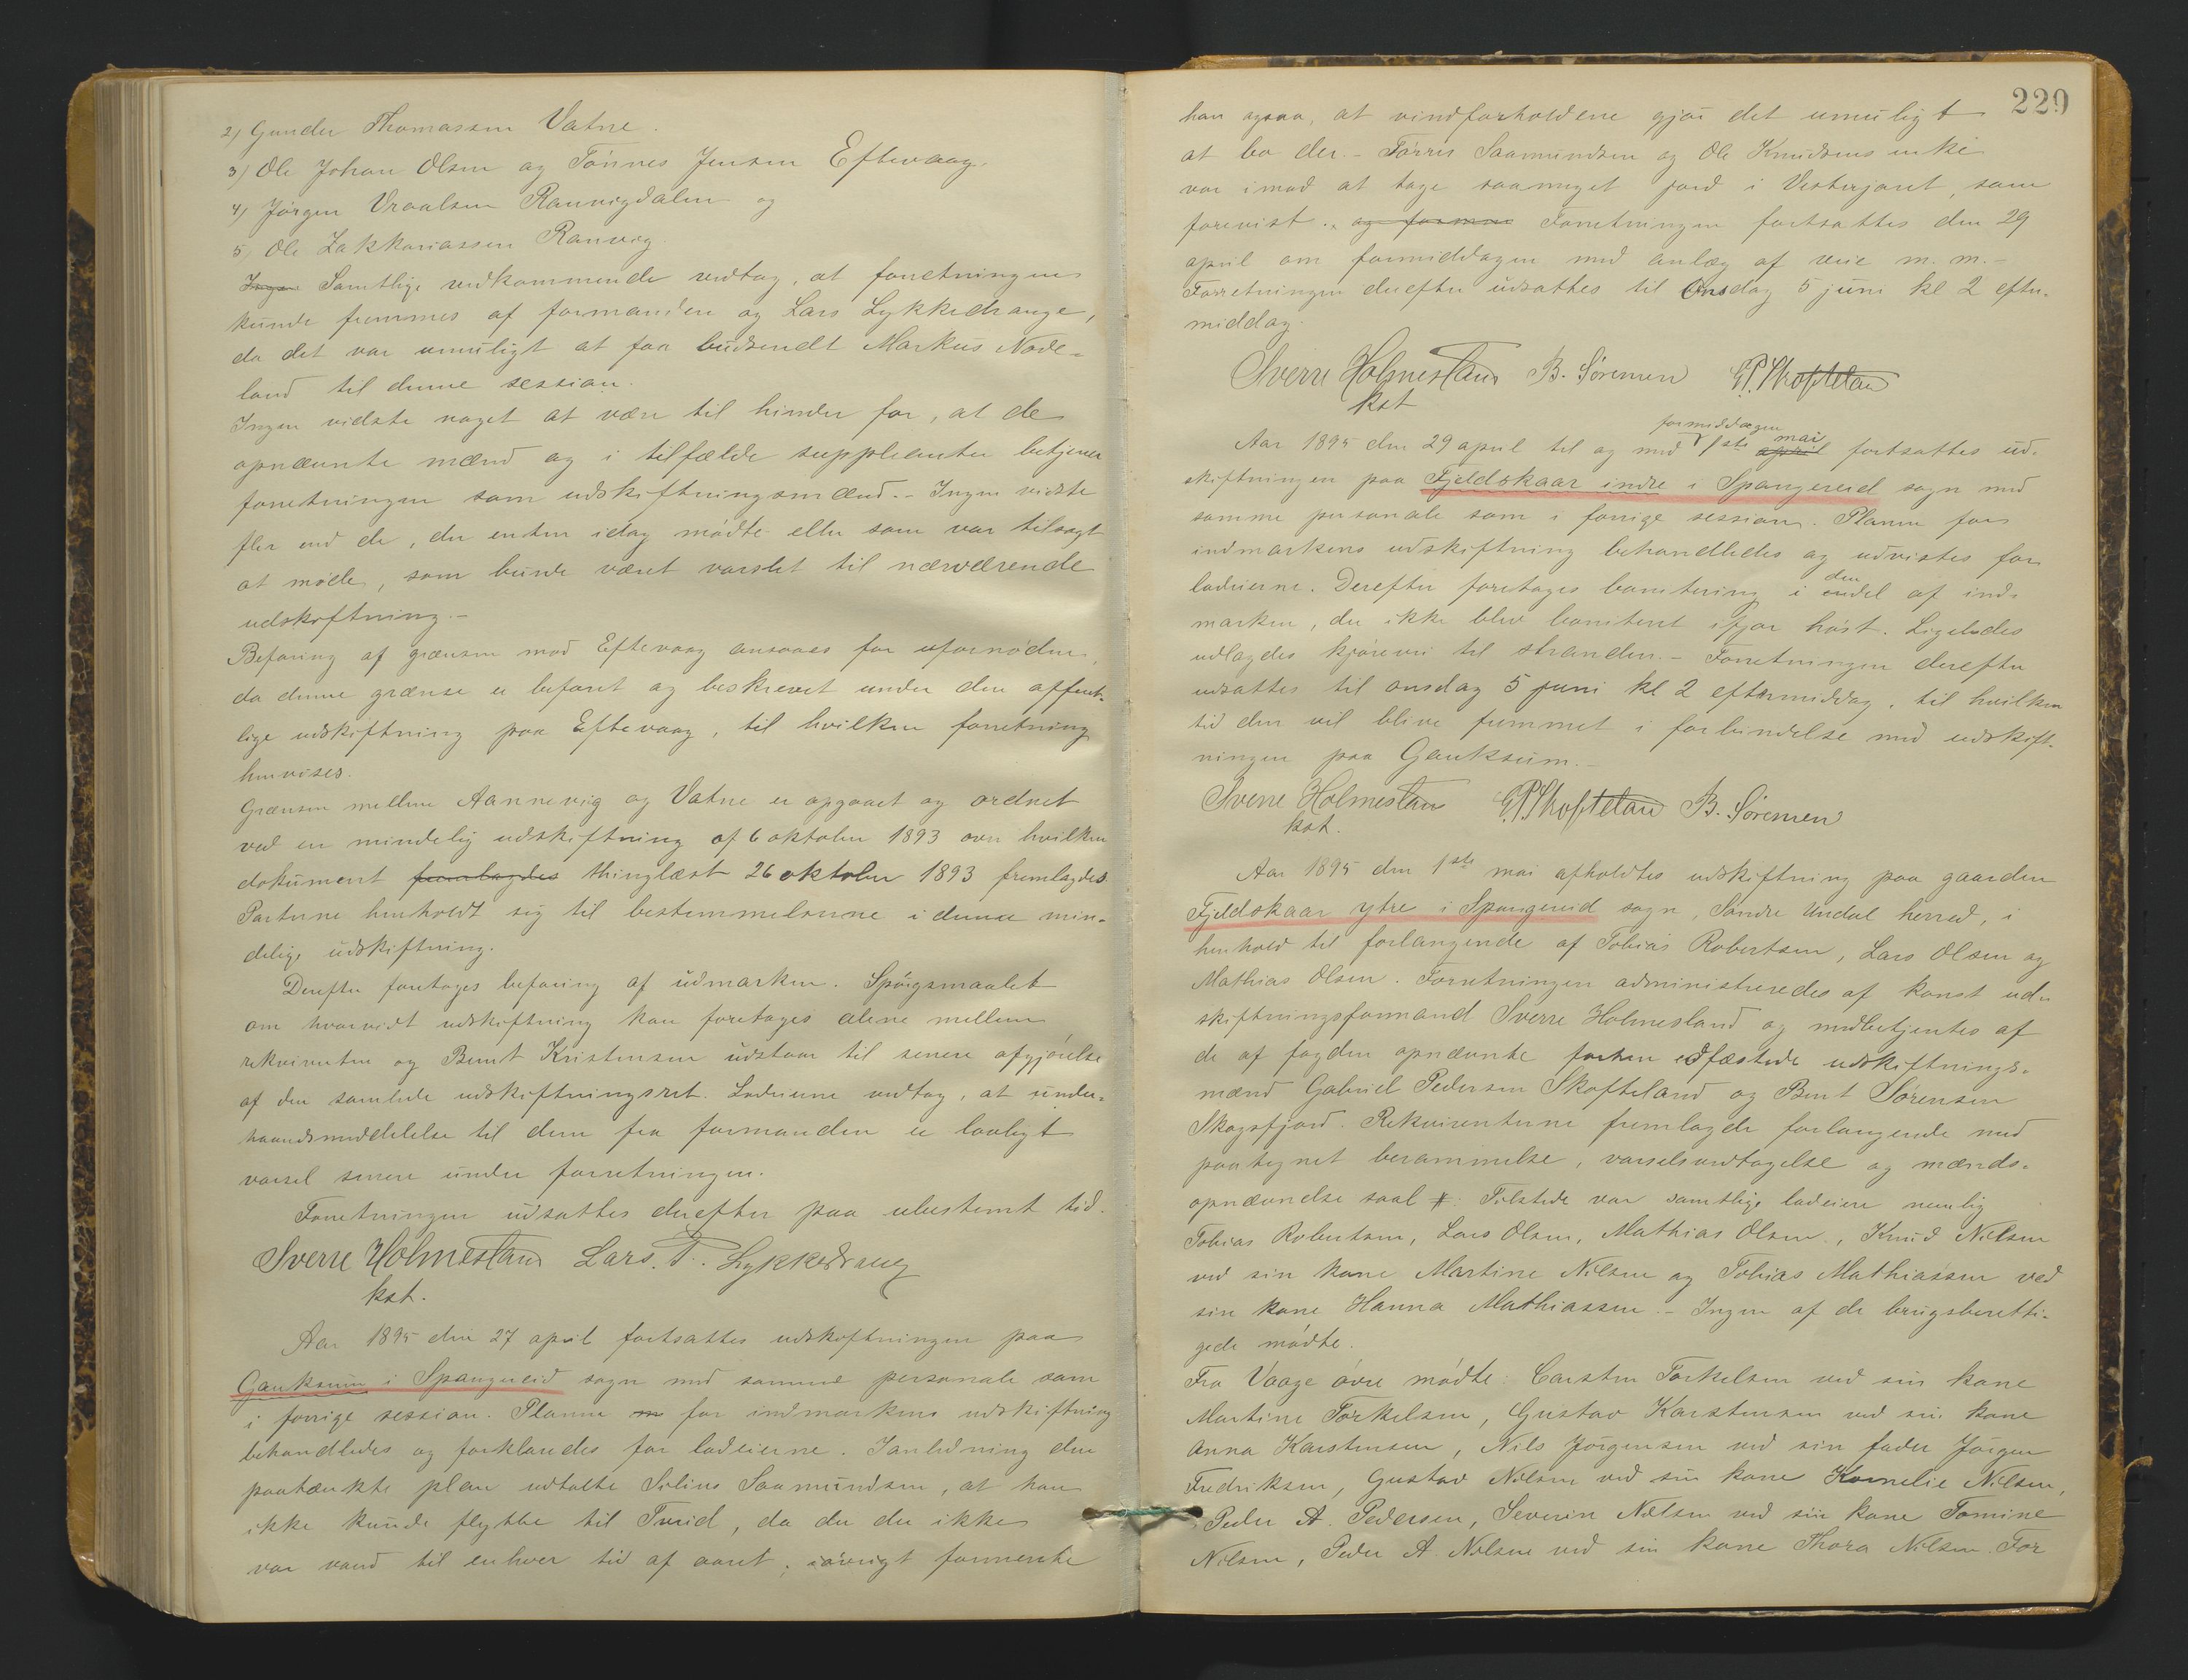 2) Gunder Thomassen Vatne.
3) Ole Johan Olsen og Tønnes Jensen Eftevaag.
4) Jørgen Vraalsen Ranvigdalen og
5) Ole Zakkariassen Ranvig.
Ingen Samtlige vedkommende vedtog, at forretningen
kunde fremmes af formanden og Lars Lykkedrange,
da det var umuligt at faa budsendt Markus Node-
land til denne session.
Ingen vidste noget at være til hinder for, at de
opnævnte mænd og i tilfælde suppleanter betjener
forretningen som udskiftningsmænd. - Ingen vidste
fler end de, der enten idag mødte eller som var tilsagt
at møde, som burde været varslet til nærværende
udskiftning. -
Befaring af grænsen mod Eftevaag ansaaes for ufornøden,
da denne grænse er befaret og beskrevet under den offent-
lige udskiftning paa Eftevaag, til hvilken forretning
henvises.
Grænsen mellem Aannevig og Vatne er opgaaet og ordnet
ved en mindelig udskiftning af 6 oktober 1893 over hvilken
dokument fremlagdes thinglæst 26 oktober 1893 fremlagdes.
Parterne henholdt sig til bestemmelserne i denne min-
delige udskiftning.
Derefter foretoges befaring af udmarken. Spørgsmaalet
om hvorvidt udskiftning kan foretages alene mellem
rekvirenten og Bernt Kristensen udstaar til senere afgjørelse
af den samlede udskiftningsret. Lodeierne vedtog, at under-
haandsmeddelelse til dem fra formanden er lovligt
varsel senere under forretningen.
Forretningen udsattes derefter paa ubestemt tid.
Sverre Holmesland Lars. T. Lykkedrang
kst.
Aar 1895 den 27 april fortsattes udskiftningen paa
Gauksum i Spangereid sogn med samme personale som
i forrige session. Planen m for indmarkens udskiftning
behandledes og forklaredes for lodeierne. I anledning den
paatænkte plan udtalte Silius Saamundsen, at han
ikke kunde flytte til Tveid, da der der ikke
var vand til enhver tid af aaret; iøvrigt formente
229
han ogsaa, at vindforholdene gjør det umuligt
at bo der. - Tørres Saamundsen og Ole Knudsens enke
var imod at tage saameget jord i Vesterjoret, som
forevist. og formen Forretningen fortsattes den 29
april om formiddagen med anlæg af veie m. m. -
Forretningen derefter udsattes til Onsdag 5 juni kl 2 efter-
middag.
Sverre Holmesland B. Sørensen G.P. Skofteland
kst
formiddagen
Aar 1895 den 29 april til og med 1ste april mai fortsattes ud-
skiftningen paa Fjeldskaar indre i Spangereid sogn med
samme personale som i forrige session. Planen for
indmarkens udskiftning behandledes og udvistes for
lodeierne. Derefter foretoges bonitering i den endel af ind-
marken, der ikke blev boniteret ifjor høst. Ligeledes
udlagdes kjørevei til stranden. - Forretningen derefter
udsattes til onsdag 5 juni kl 2 eftermiddag, til hvilken
tid den vil blive fremmet i forbindelse med udskift-
ningen paa Gauksum. -
Sverre Holmesland G.P. Skofteland B. Sørensen
kst.
Aar 1895 den 1ste mai afholdtes udskiftning paa gaarden
Fjeldskaar ytre i Spangereid sogn, Søndre Undal herred, i
henhold til forlangende af Tobias Robertsen, Lars Olsen og
Mathias Olsen. Forretningen administreredes af konst ud-
skiftningsformand Sverre Holmesland og medbetjentes af
de af fogden opnævnte forhen edfæstede udskiftnings-
mænd Gabriel Pedersen Skofteland og Bernt Sørensen
Skogsfjord. Rekvirenterne fremlagde forlangende med
paategnet berammelse, varselsvedtagelse og mænds-
opnævnelse saal #: Tilstede var samtlige lodeiere nemlig
Tobias Robertsen, Lars Olsen, Mathias Olsen., Knud Nilsen
ved sin kone Martine Nilsen og Tobias Mathiassen ved
sin kone Hanna Mathiassen. - Ingen af de brugsberetti-
gede mødte.
Fra Vaage øvre mødte: Carsten Torkelsen ved sin kone
Martine Torkelsen, Gustav Karstensen ved sin kone
Anna Karstensen, Nils Jørgensen ved sin fader Jørgen
Fredriksen, Gustav Nilsen ved sin kone Kornelie Nilsen,
Peder A. Pedersen, Severin Nilsen ved sin kone Tomine
Nilsen, Peder A. Nilsen ved sin kone Thora Nilsen. For